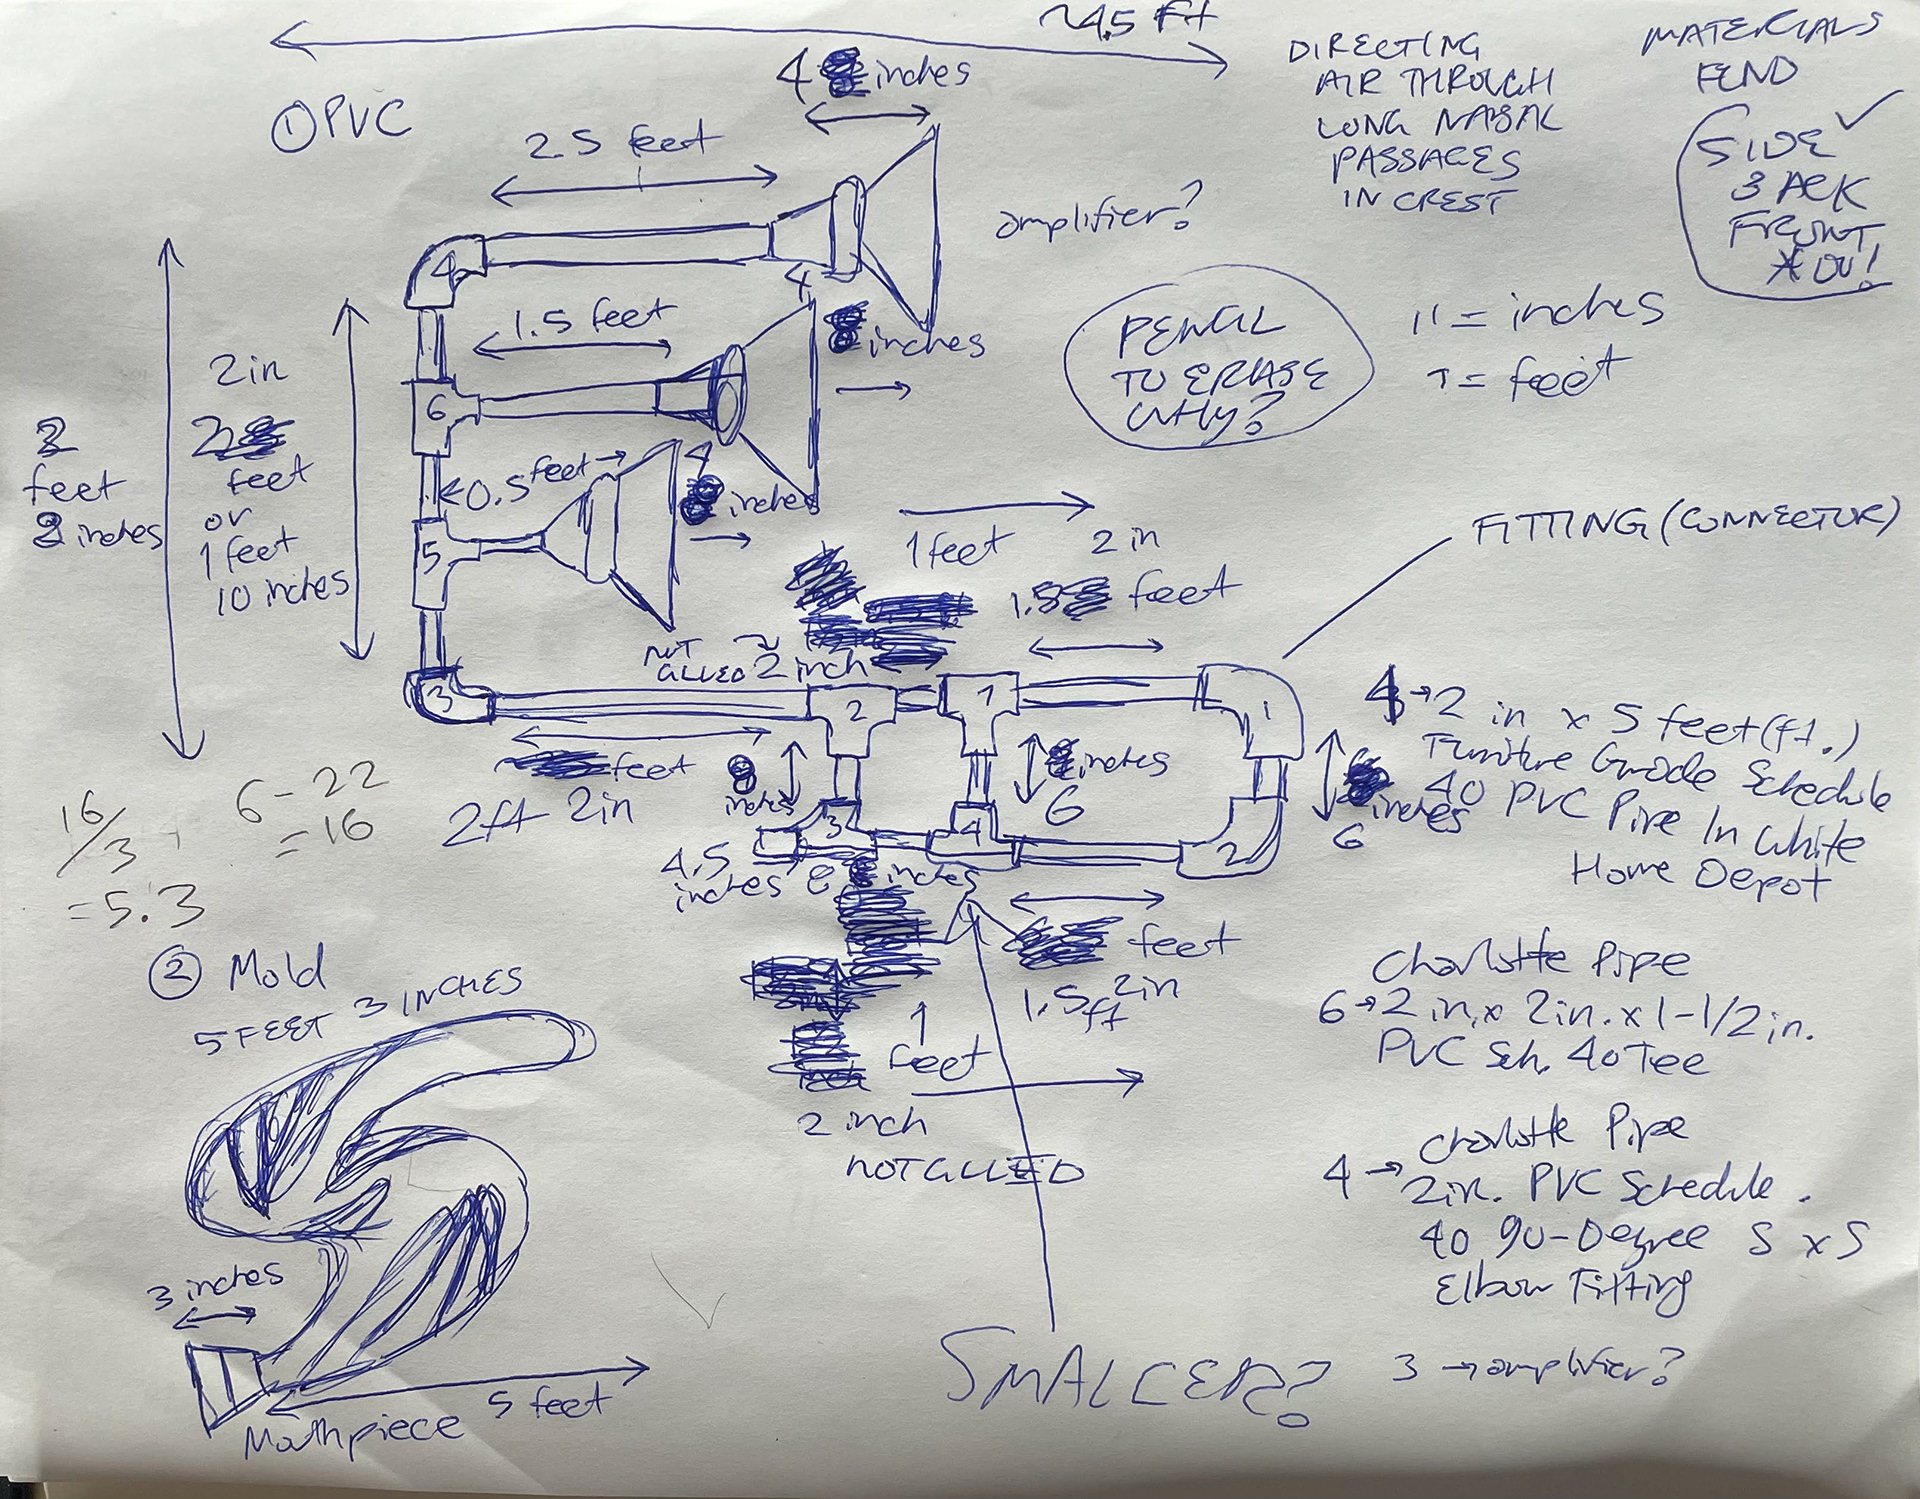 ~4.5 Ft
4 inches
① PVC
2.5 feet
DIRECTING
AIR THROUGH
LONG NASAL
PASSAGES
IN CREST
MATERIALS
FEND
SIDE ✓
BACK
FRONT
amplifier?
4
1.5 feet
4
inches
PENCIL
TO ERASE
WHY?
11 = inches
1 = feet
2 in
2
feet
or
1 feet
10 inches
2
feet
2 inches
6
0.5 feet
4
inches
5
FITTING (CONNECTOR)
1 feet
2 in
1.5 feet
NOT
GLUED 2 inch
3
2
1
1
feet
2ft 2in
8
inches
inches
6
inches
6
3
4
2
4.5
inches
inches
feet
1.5ft 2in
16/3
= 5.3
6 - 22
= 16
1
feet
2 inch
NOT GLUED
SMALLER?
4 → 2 in x 5 feet (ft.)
Furniture Grade Schedule
40 PVC Pipe In White
Home Depot
Charlotte Pipe
6 → 2 in. x 2 in. x 1-1/2 in.
PVC Sch. 40 Tee
Charlotte Pipe
4 → 2 in. PVC Schedule.
40 90-Degree S x S
Elbow Fitting
3 → amplifier?
② Mold
5 FEET 3 INCHES
3 inches
5 feet
Mouthpiece